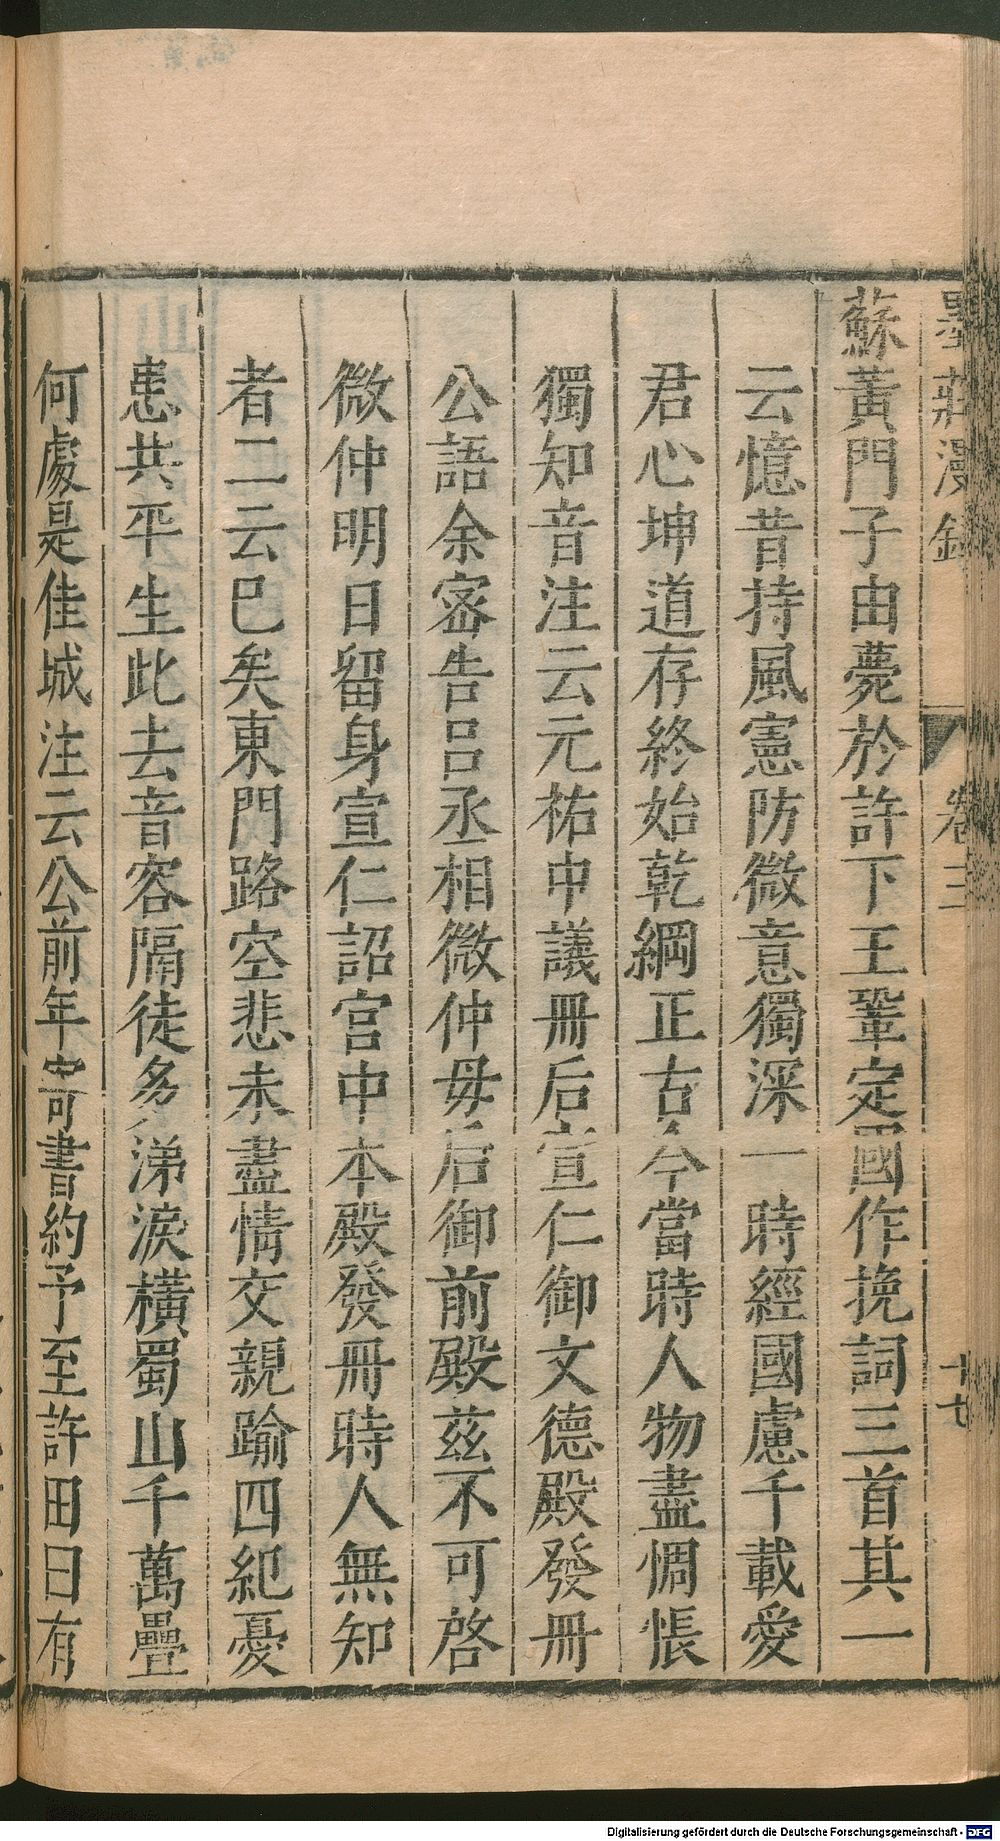 墨莊漫錄 卷三 十七
蘇黃門子由薨於許下王鞏定國作挽詞三首其一
云憶昔持風憲防微意獨深一時經國慮千載愛
君心坤道存終始乾綱正古今當時人物盡惆悵
獨知音注云元祐中議冊后宣仁御文德殿發冊
公語余密告呂丞相微仲毋后御前殿茲不可啓
微仲明日留身宣仁詔宮中本殿發冊時人無知
者二云巳矣東門路空悲未盡情交親踰四紀憂
患共平生此去音容隔徒多涕淚橫蜀山千萬疊
何處是佳城注云公前年寄書約予至許田曰有
Digitalisierung gefördert durch die Deutsche Forschungsgemeinschaft - DFG